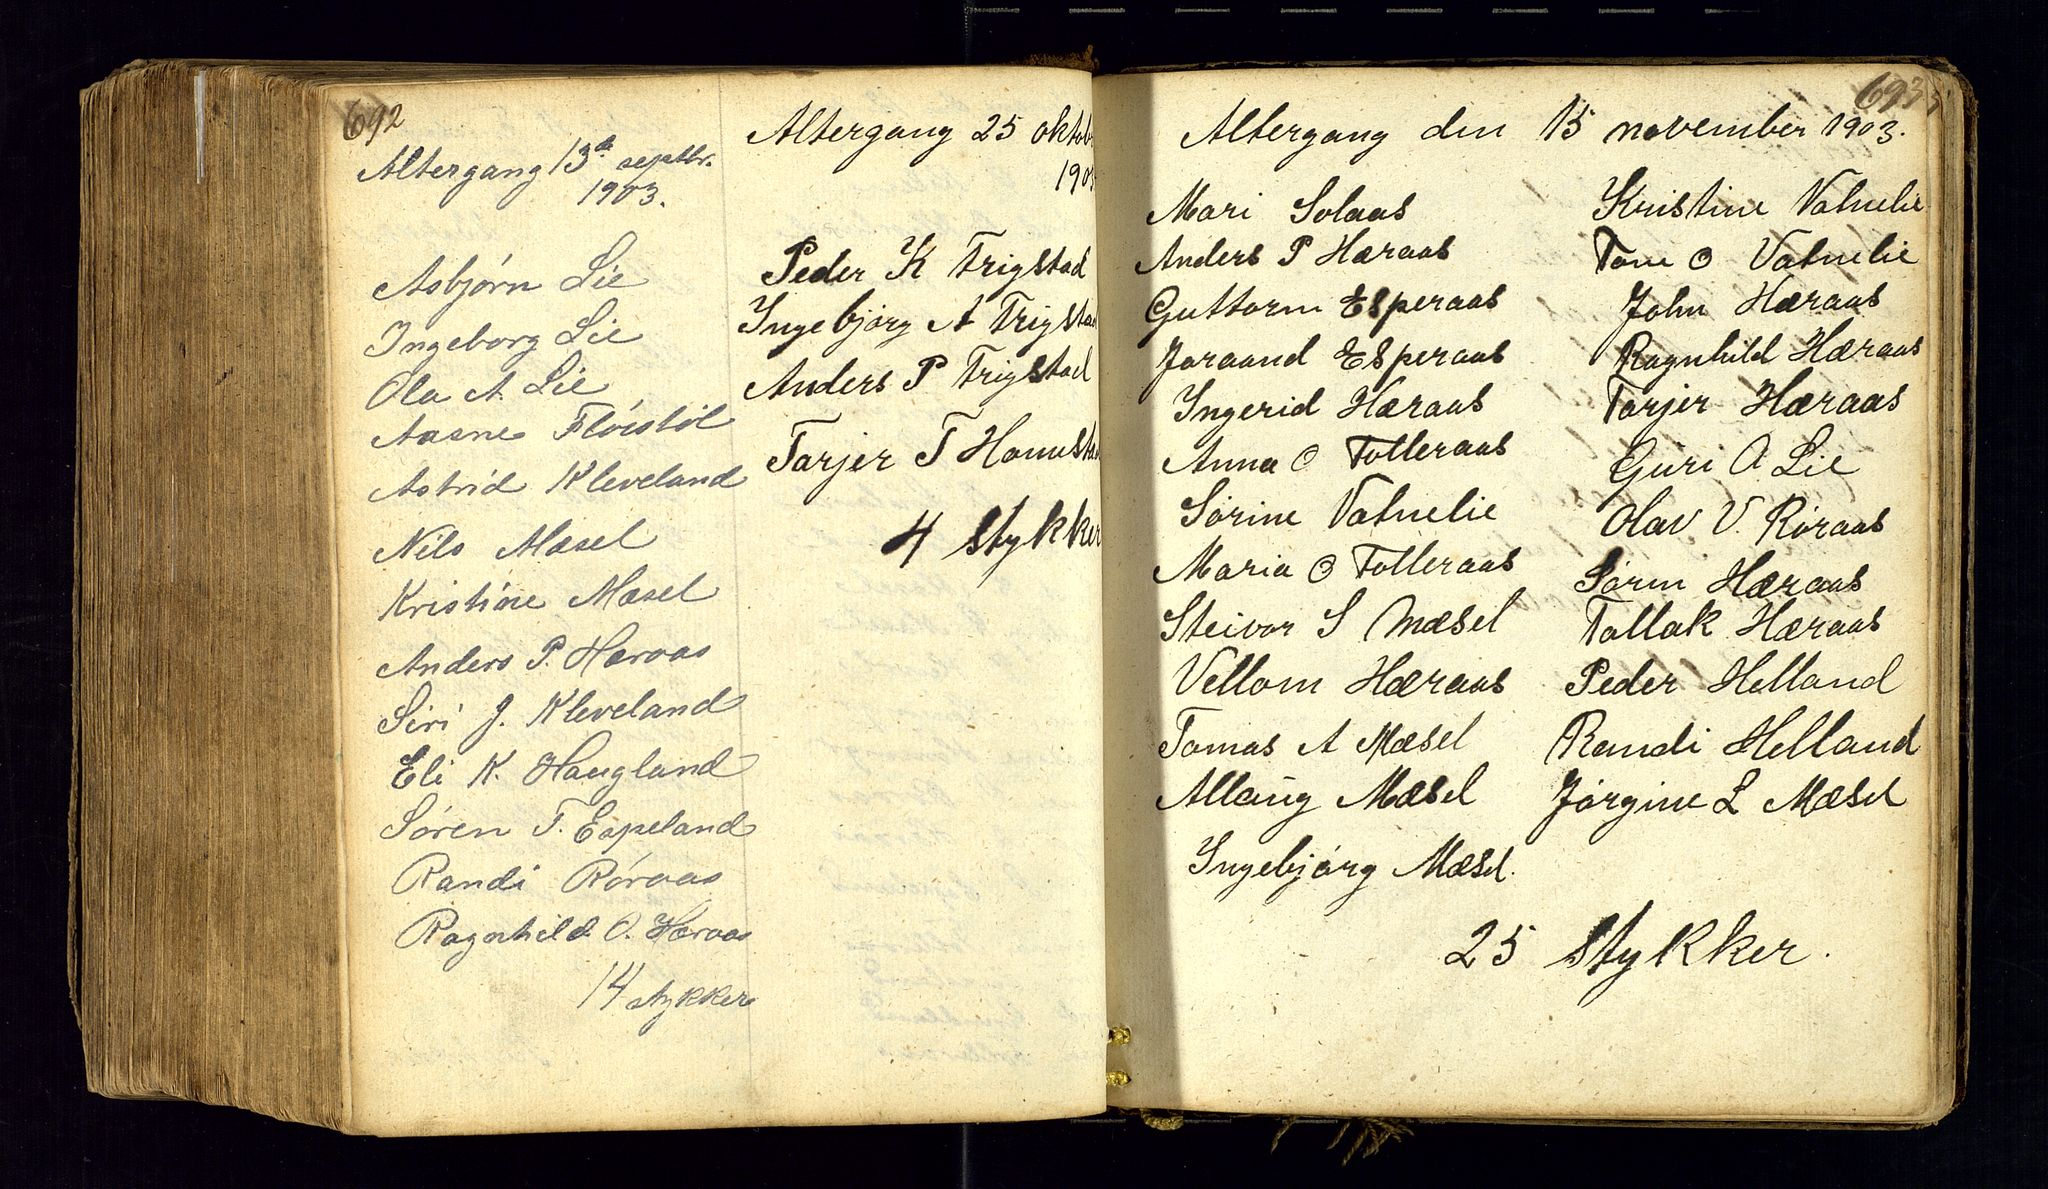 692
Altergang 13de septbr.
1903.
Asbjørn Lie
Ingeborg Lie
Ola A. Lie
Aasne Fløistøl
Astrid Kleveland
Nils Mæsel
Kristine Mæsel
Anders P. Hæraas
Siri J. Kleveland
Eli K. Haugland
Søren T. Espeland
Randi Røraas
Ragnhild O. Hæraas
14 stykker
Altergang 25 oktob
190
Peder K Trigstad
Ingebjørg A Trigstad
Anders P Trigstad
Tarjer T Homsta
4 stykker
693
Altergang den 15 november 1903.
Mari Solaas
Anders P Hæraas
Guttorm Esperaas
Joraand Esperaas
Ingerid Hæraas
Anna O Tolleraas
Sørine Vatnelie
Maria O Tolleraas
Steivor S Mæsel
Vellom Hæraas
Tomas A Mæsel
Allaug Mæsel
Ingebjørg Mæsel.
Kristine Vatnelie
Tone O Vatnelie
John Hæraas
Ragnhild Hæraas
Tarjer Hæraas
Guri O. Lie
Olav V. Røraas
Sørin Hæraas
Tallak Hæraas
Peder Helland
Randi Helland
Jørgine L Mæsel
25 stykker.